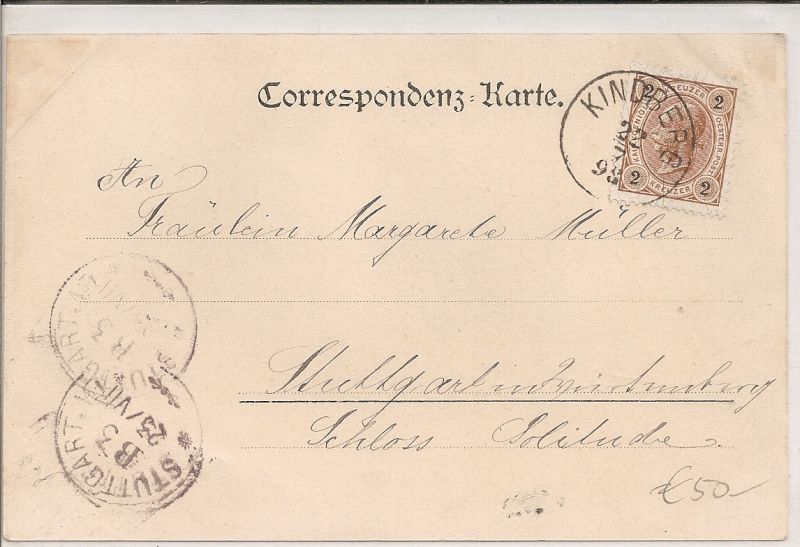 Correspondenz-Karte.
KINDBERG
22
98
2 KREUZER 2
KAIS. KÖNIGL. OESTERR. POST
2 KREUZER 2
An
Fräulein Margarete Müller
Stuttgart in Würtemberg
Schloss Solitude.
STUTTGART
R 3
STUTTGART
23/VII
B 3
£50-